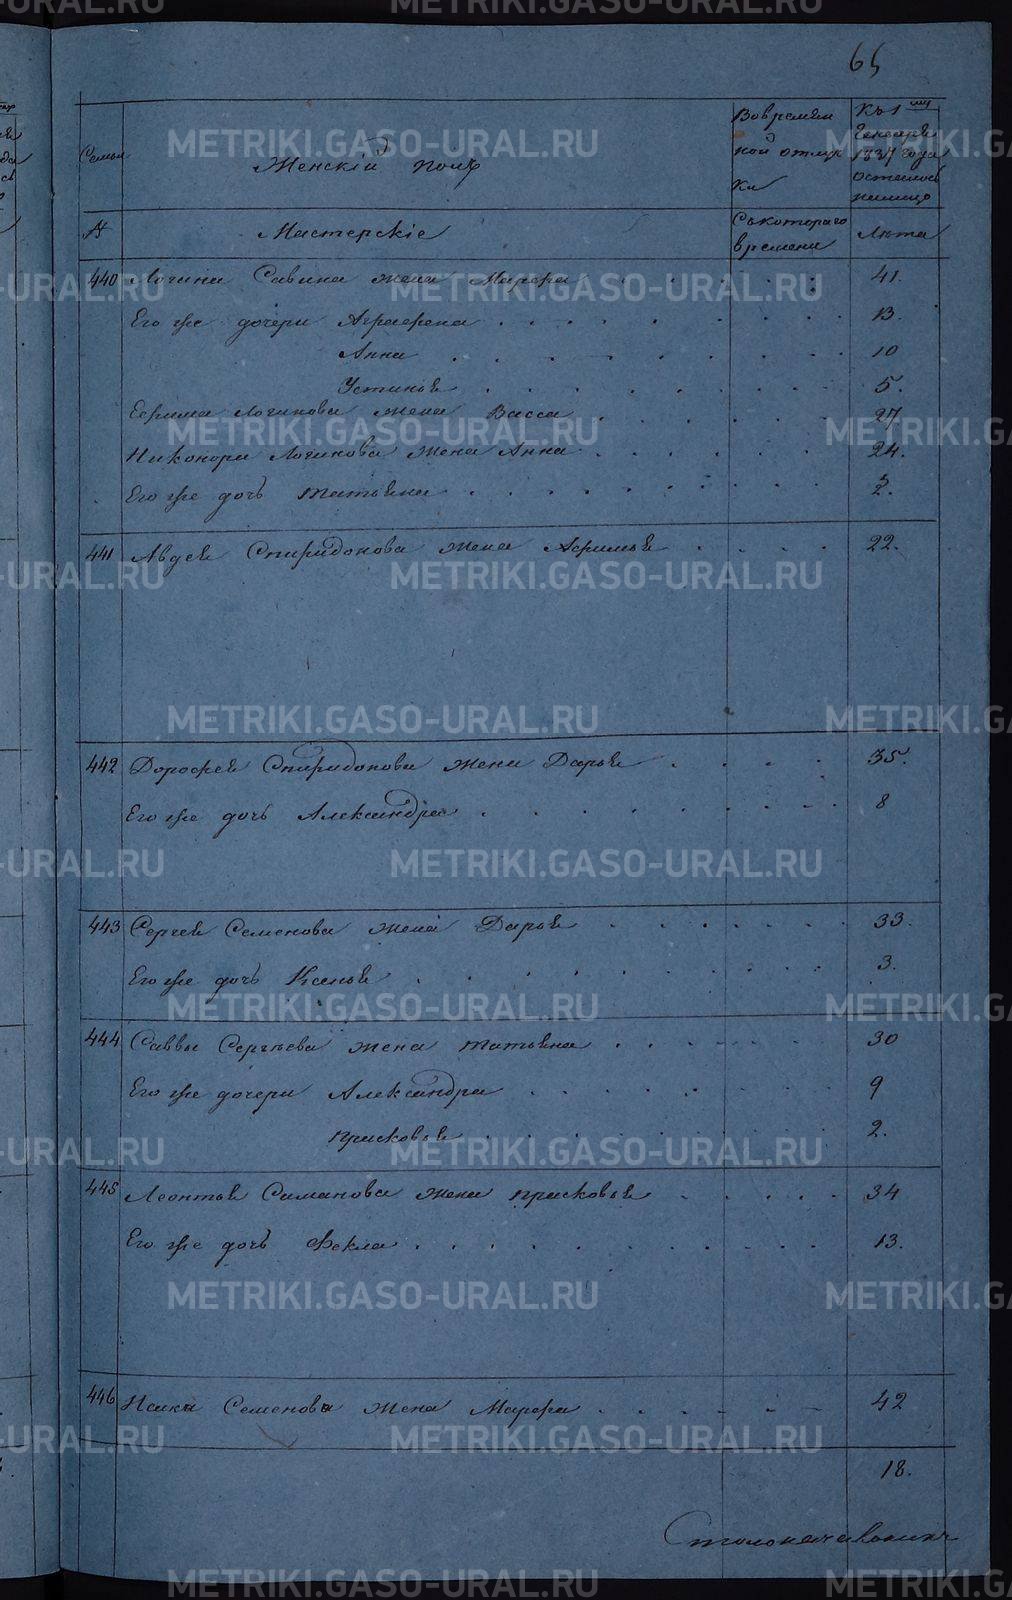 65
Семьи
Женскiй полъ
Во времян
ной отлуч
ки
Къ 1му
Генваря
1837 года
осталось
налицо
№
Мастерскiе
Съ котораго
времени
Лѣта
440 Логина Савина жена Марфа 41.
Его же дочери Аграфена 13.
Анна 10
Устинья 5.
Ефима Логинова жена Васса 27
Никонора Логинова жена Анна 24.
Его же дочь Татьяна 2.
441 Авдея Спиридонова жена Афимья 22.
442 Дорофея Спиридонова жена Дарья 35.
Его же дочь Александра 8
443 Сергея Семенова жена Дарья 33.
Его же дочь Ксенья 3.
444 Саввы Сергѣева жена Татьяна 30
Его же дочери Александра 9
Прасковья 2.
445 Леонтья Симанова жена Прасковья 34
Его же дочь Фекла 13.
446 Исака Семенова жена Марфа 42
18.
METRIKI.GASO-URAL.RU